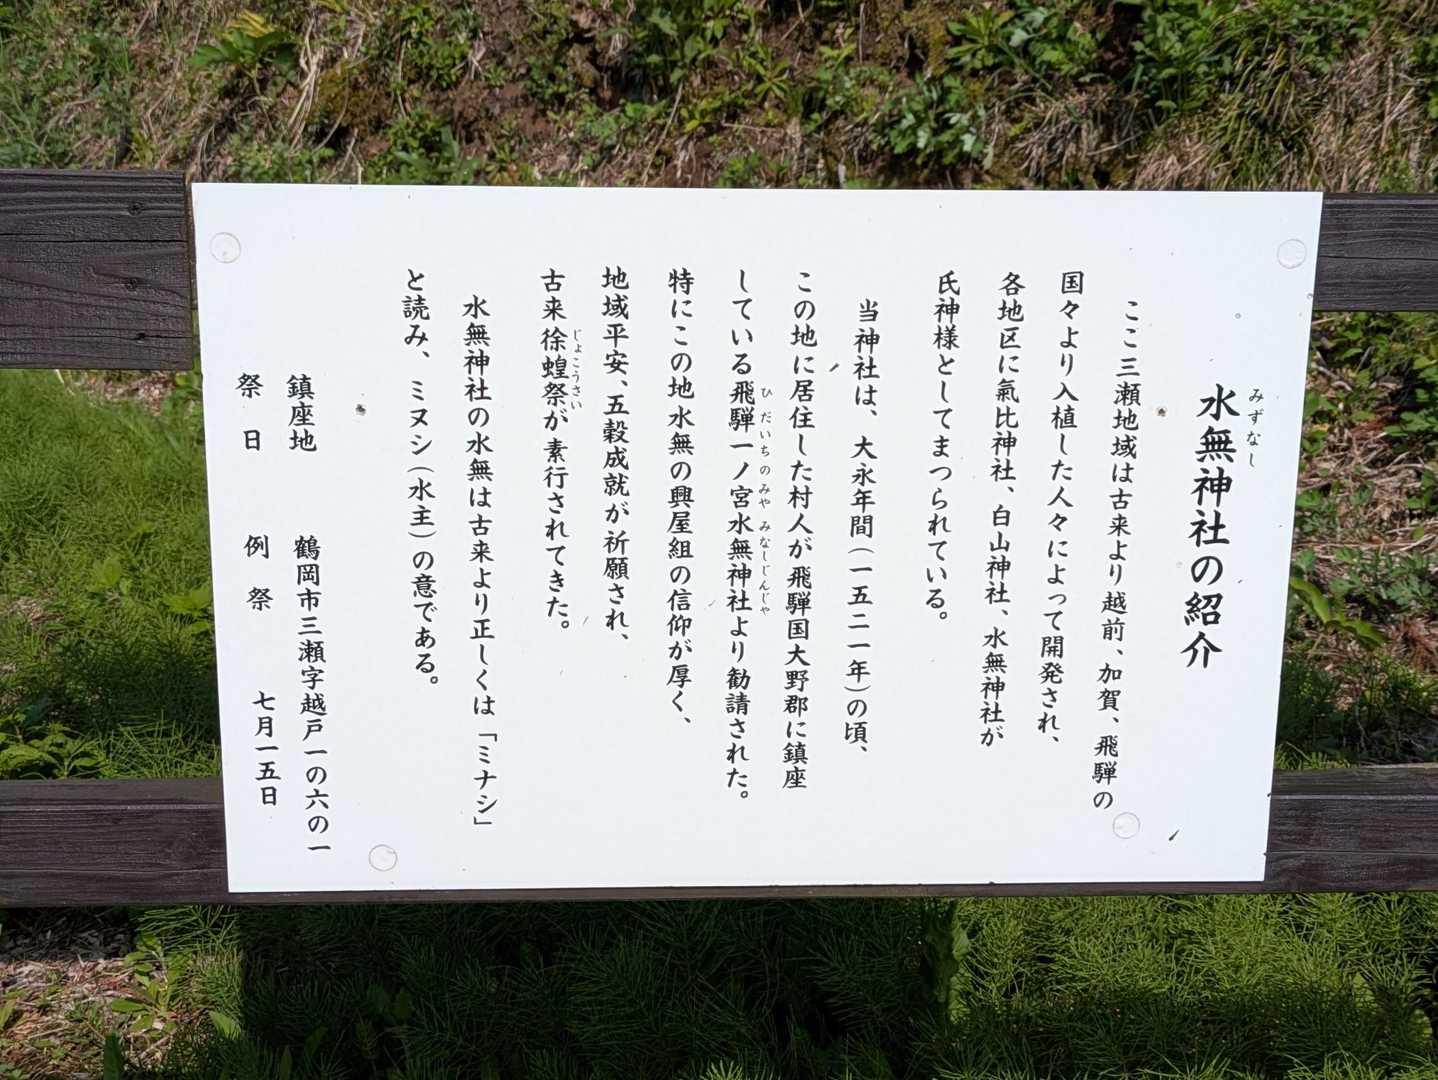 水無神社の紹介
みずなし
ここ三瀬地域は古来より越前、加賀、飛騨の
国々より入植した人々によって開発され、
各地区に氣比神社、白山神社、水無神社が
氏神様としてまつられている。
当神社は、大永年間(一五二一年)の頃、
この地に居住した村人が飛騨国大野郡に鎮座
している飛騨一ノ宮水無神社より勧請された。
ひだいちのみやみなしじんじゃ
特にこの地水無の興屋組の信仰が厚く、
地域平安、五穀成就が祈願され、
古来徐蝗祭が素行されてきた。
じょこうさい
水無神社の水無は古来より正しくは「ミナシ」
と読み、ミヌシ(水主)の意である。
鎮座地 鶴岡市三瀬字越戸一の六の一
祭日 例祭 七月一五日